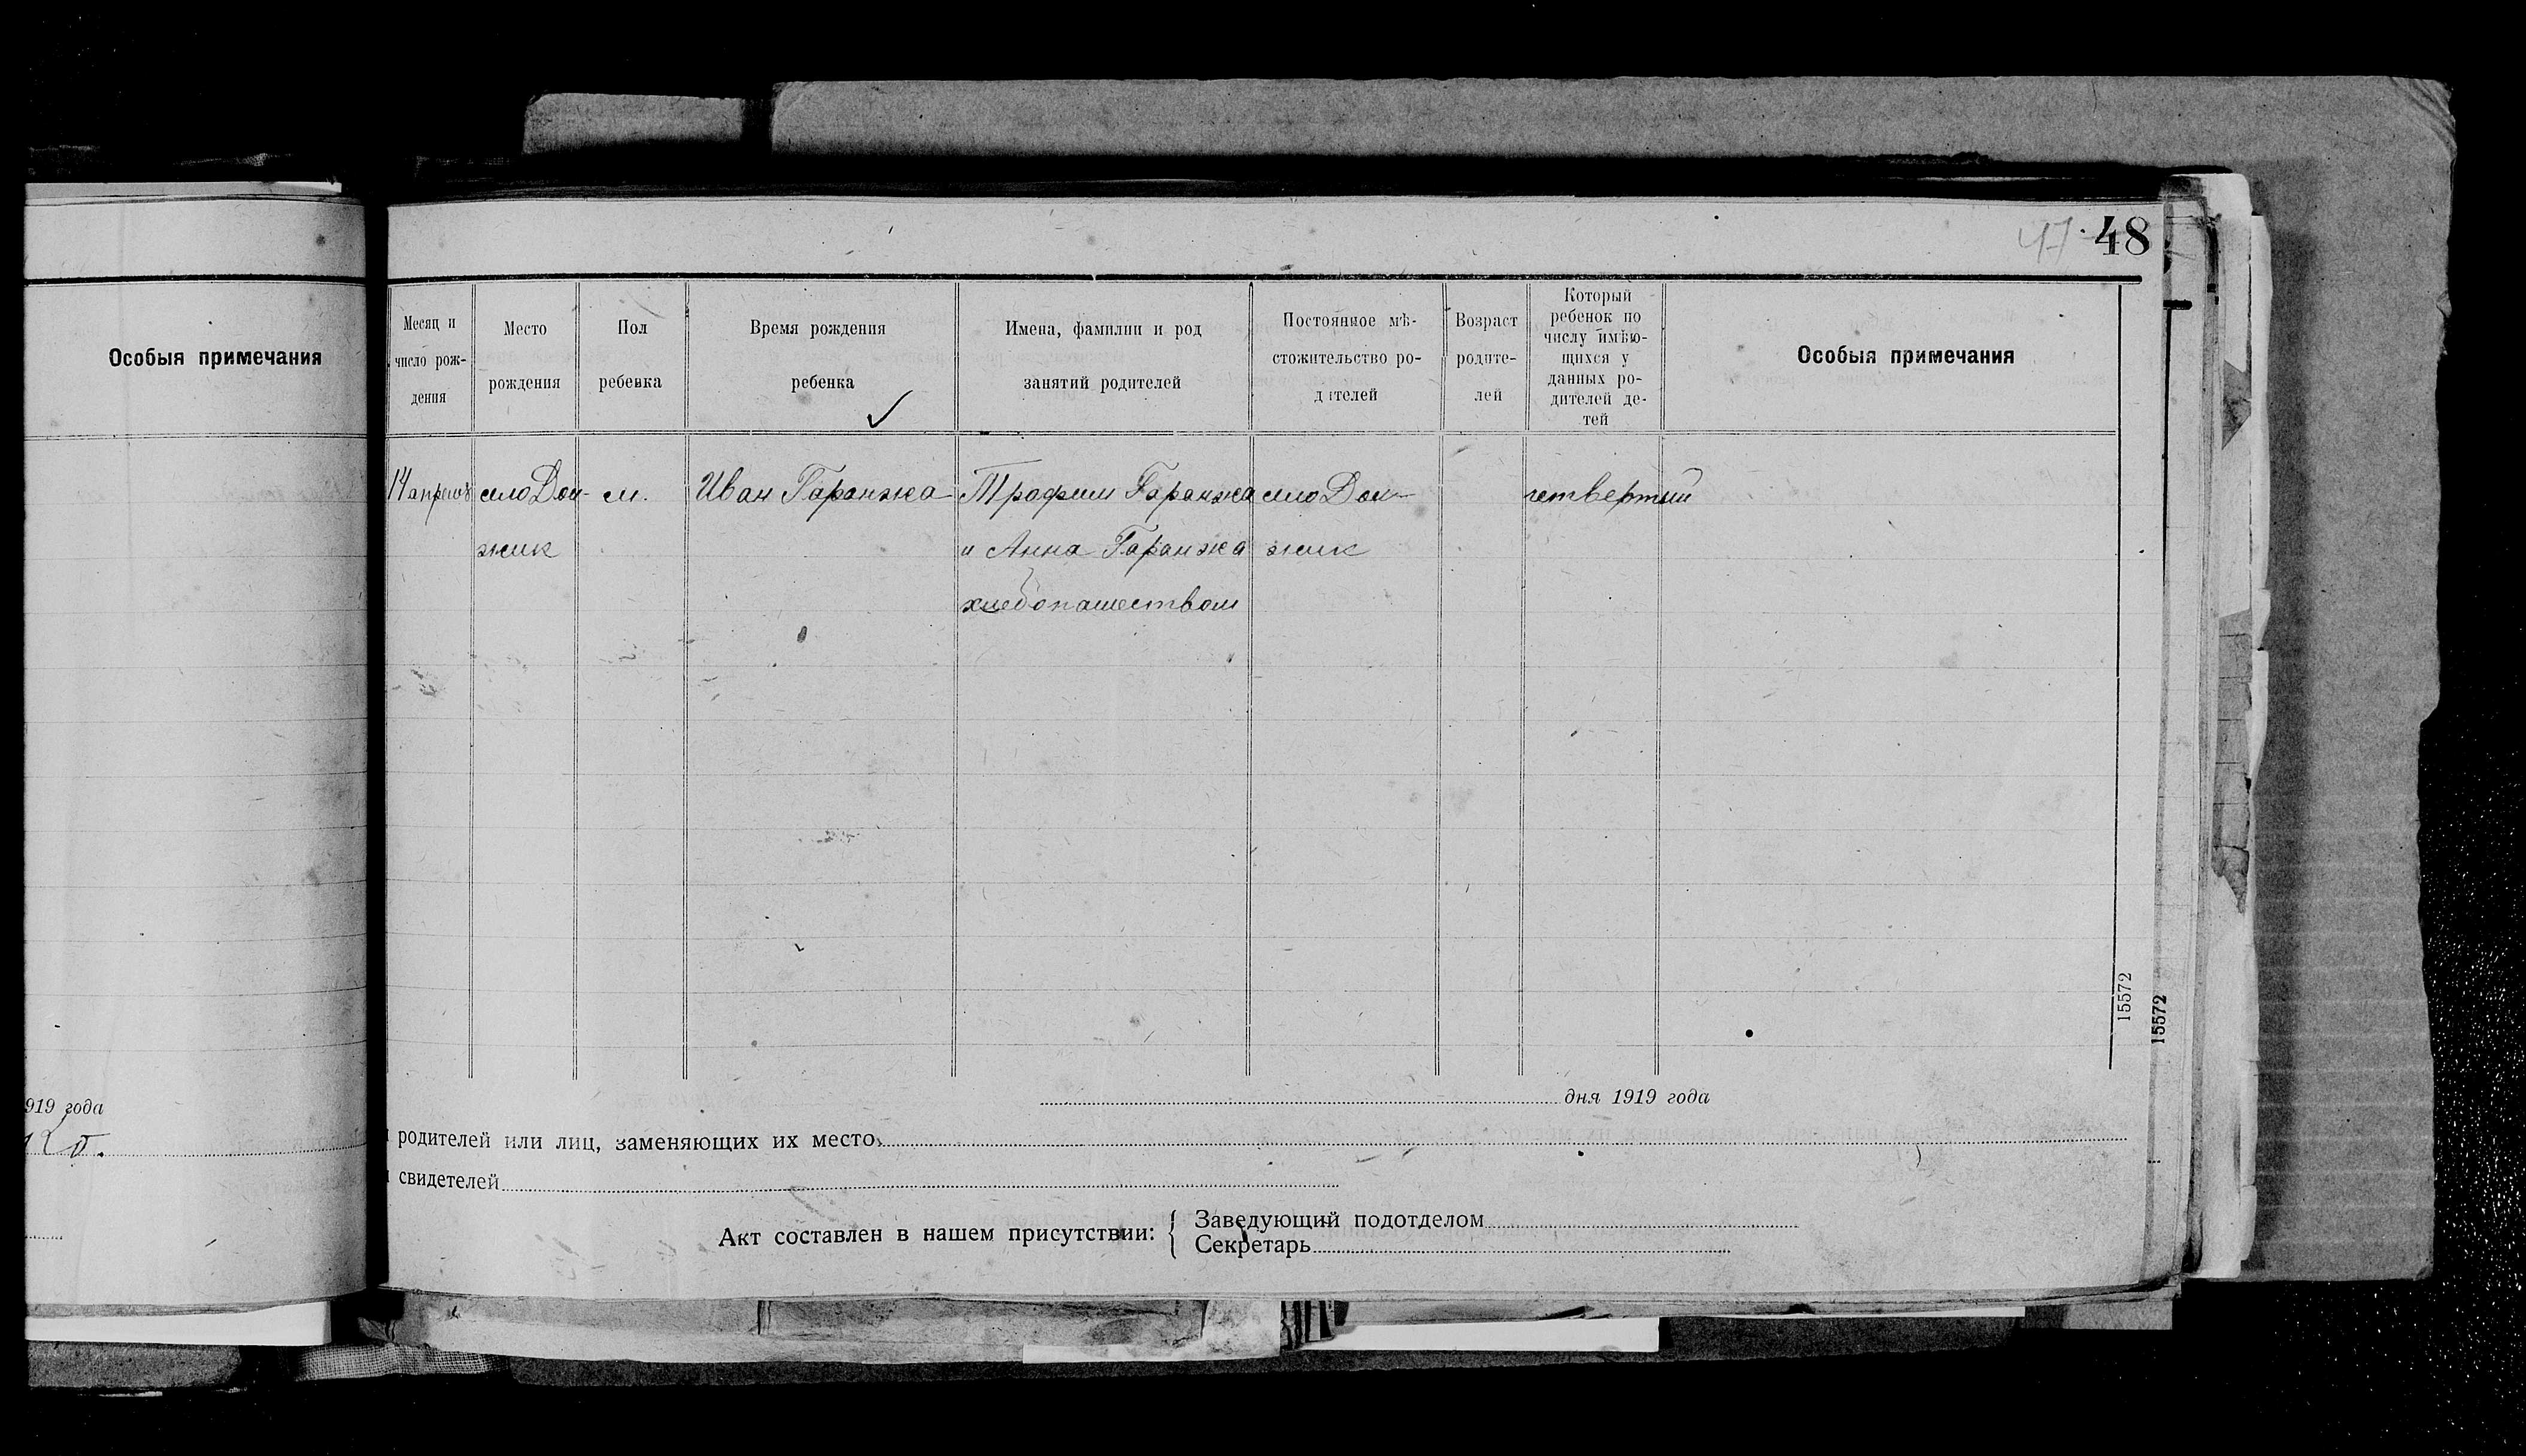 47 48
Особыя примечания
Месяц и
число рож-
дения
Место
рождения
Пол
ребенка
Время рождения
ребенка
Имена, фамилии и род
занятий родителей
Постоянное мѣ-
стожительство ро-
дителей
Возраст
родите-
лей
Который
ребенок по
числу имѣю-
щихся у
данных ро-
дителей де-
тей
Особыя примечания
14 апреля село Дол- м. Иван Гаранжа Трофим Гаранжа село Дол- четвертий
жик и Анна Гаранжа жик
хлебопашеством
15572
15572
919 года
дня 1919 года
родителей или лиц, заменяющих их место
свидетелей
Акт составлен в нашем присутствии:
Заведующий подотделом
Секретарь